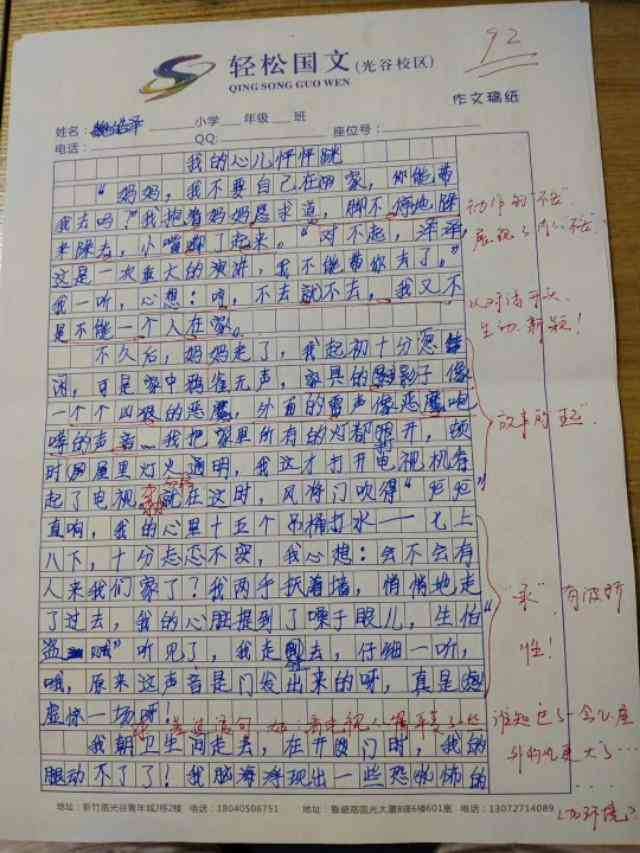 轻松国文(光谷校区)
QING SONG GUO WEN
92
作文稿纸
姓名: 小学 年级 班
电话: QQ: 座位号:
我的心儿怦怦跳
“妈妈,我不要自己在家,你能带
我去吗?”我抱着妈妈恳求道,脚不停地跺
来跺去,小嘴撅了起来。“对不起,泽泽,
这是一次重大的演讲,我不能带你去了。”
我一听,心想:哼,不去就不去,我又不
是不能一个人在家。
不久后,妈妈走了,我起初十分悠
闲,可是家中鸦雀无声,家具的影子像
一个个凶狠的恶魔,外面的雷声像恶魔咆
哮的声音、我把家里所有的灯都打开,顿
时屋里灯火通明,我这才打开电视机看
起了电视 就在这时,风将门吹得“咚咚”
直响,我的心里十五个吊桶打水——七上
八下,十分忐忑不安,我心想:会不会有
人来我们家了?我两手扶着墙,悄悄地走
了过去,我的心脏提到了嗓子眼儿,生怕“
盗贼”听见了,我走去,仔细一听,
哦,原来这声音是门发出来的呀,真是
虚惊一场呀!
我朝卫生间走去,在开门时,我的
腿动不了了!我脑海浮现出一些恐怖的
动作的
以对话开头
生动、新颖!
故事的
有波折
性!
谁知过了一会儿
地址:新竹路光谷青年城2栋2楼 电话:18040506751 地址: 国光大厦B座6楼601室 电话:13072714089